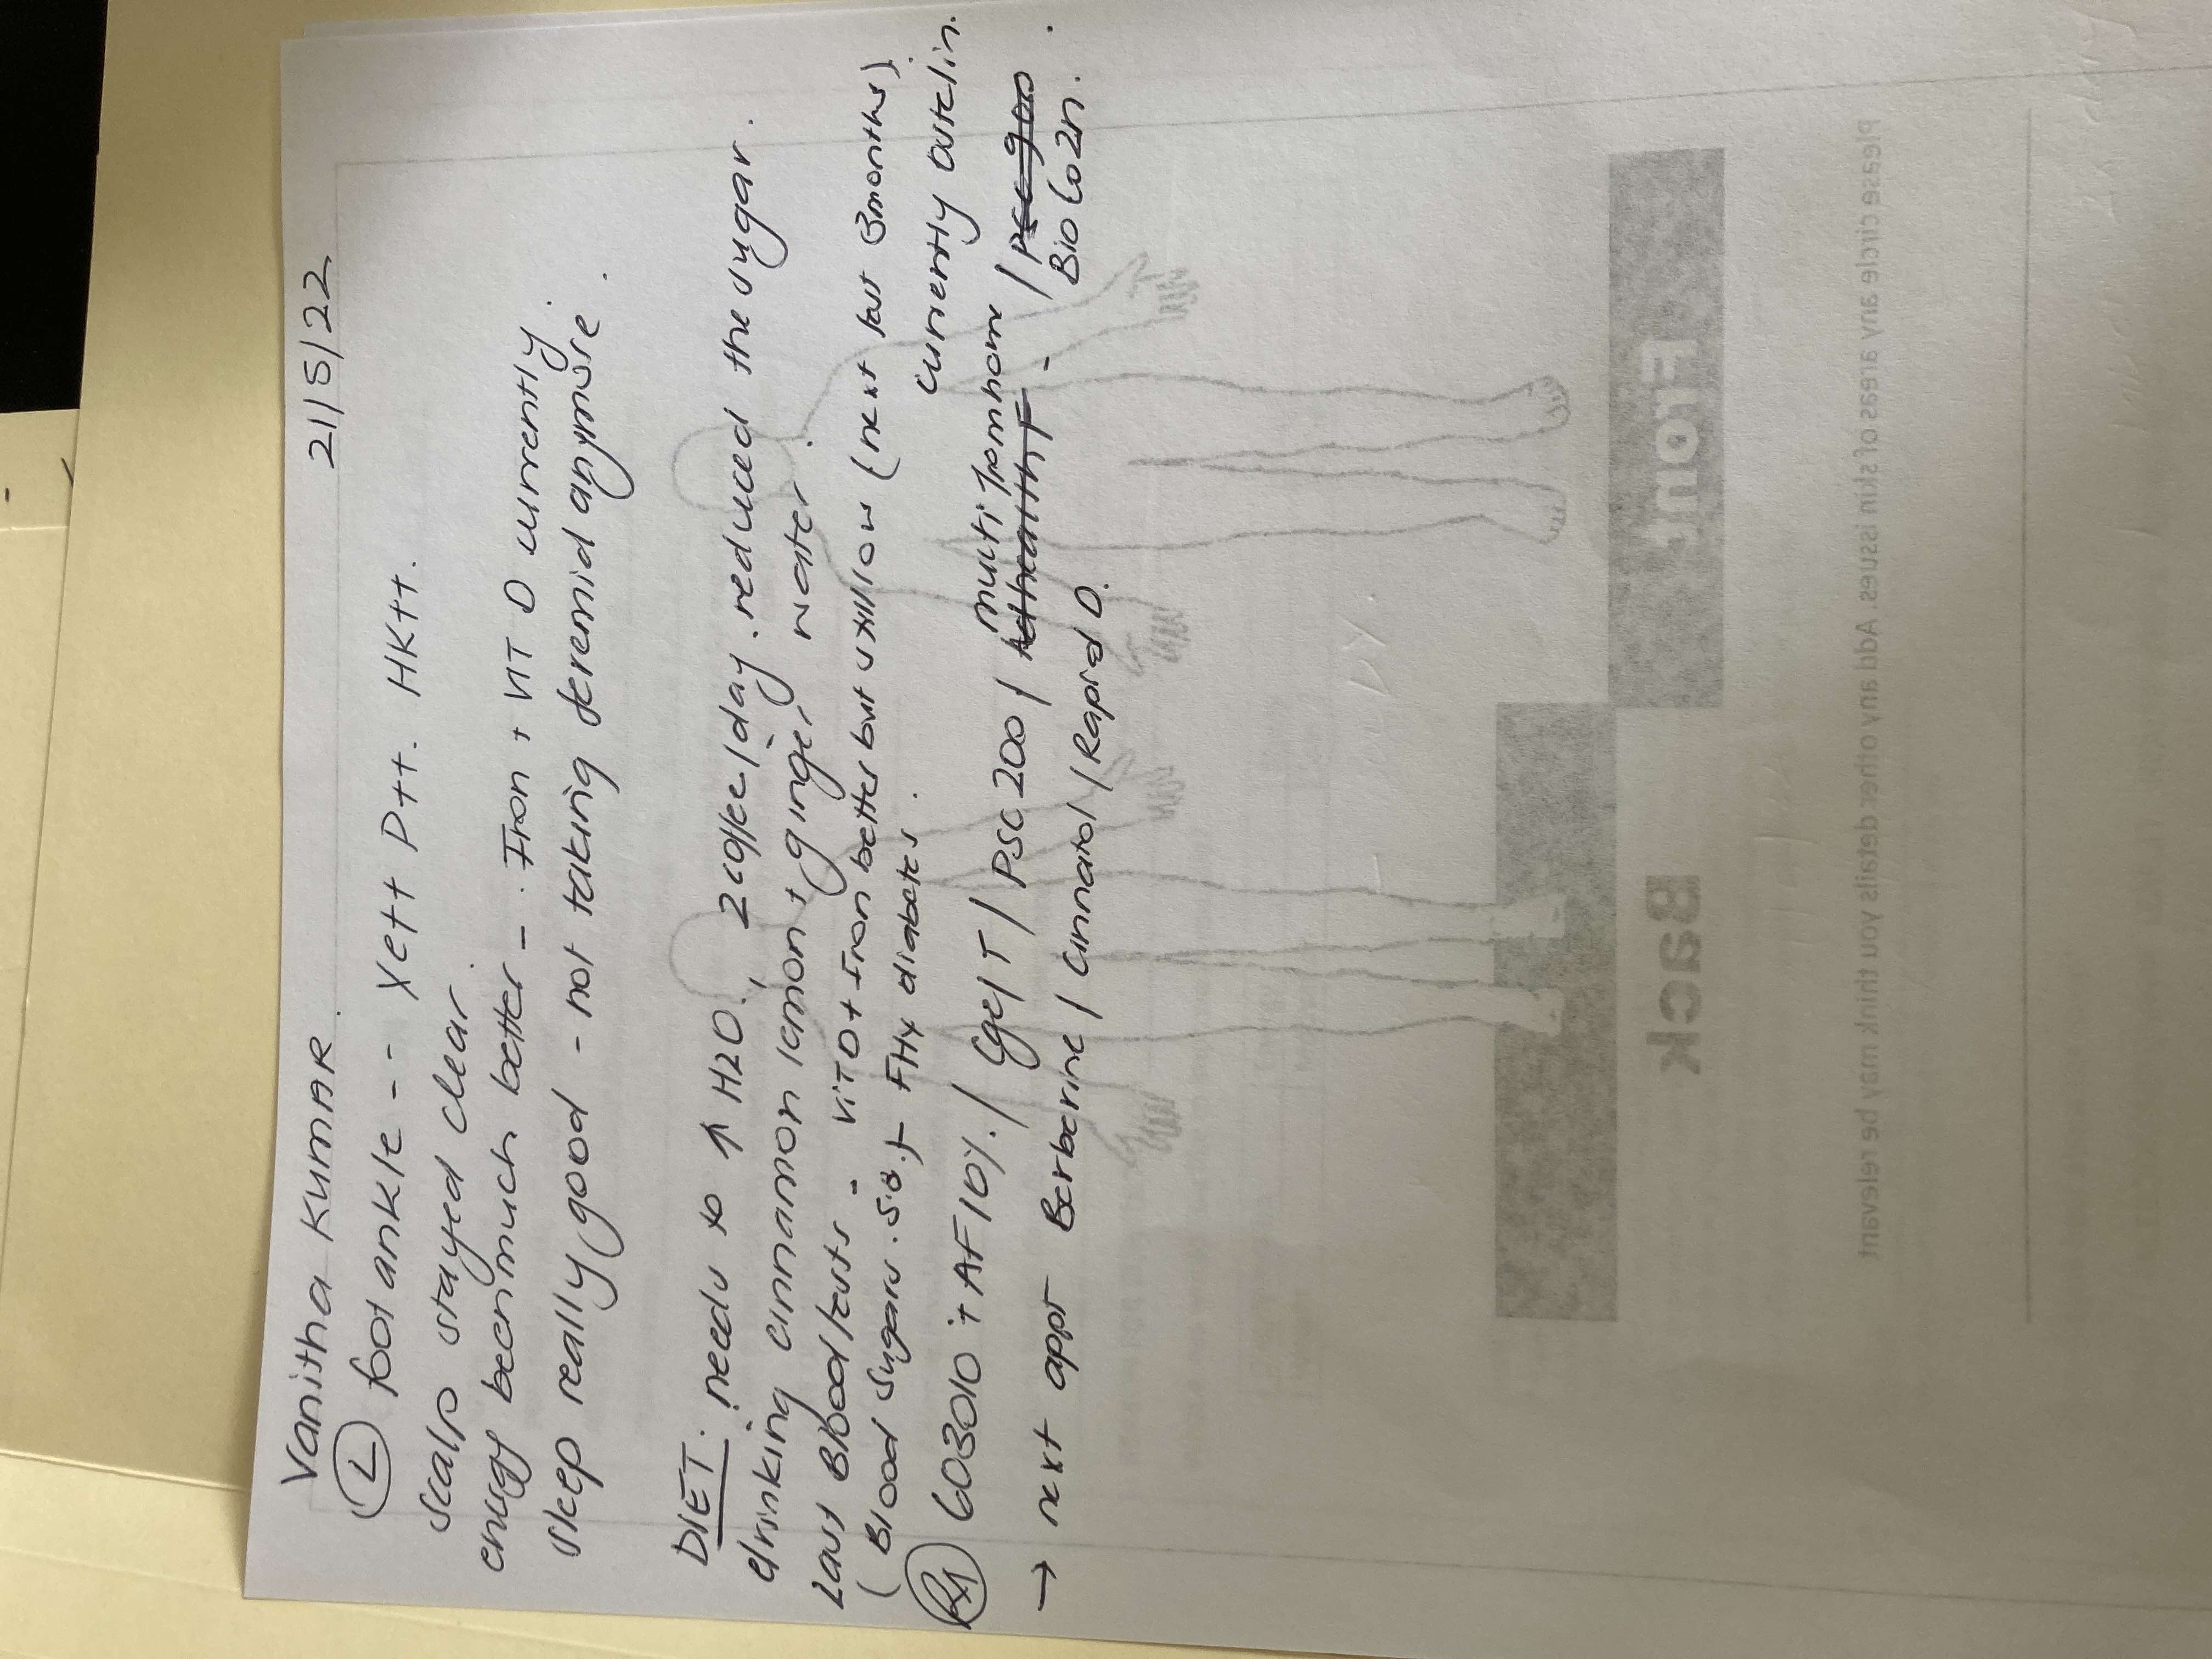 Vanitha Kumar. 21/5/22
(L) foot ankle -- Xe++ P++. HK++.
scalp stayed clear.
energy been much better - . Iron + VIT D currently.
sleep really good - not taking anymore.
DIET. needs to ↑ H2O. 2 coffee/day. reduced the sugar.
drinking cinnamon lemon + ginger water.
Last Blood tests - VIT D + Iron better but still low (next test 3months).
(Blood sugars. 5.8.) FHx diabetes. currently
Rx 603010 + AF10%. / Gge/T / PSC200 / multi from home / Bio Co2n.
→ next appt Berberine / Cinnatol / Rapid D.
Please circle any areas of skin issues. Add any other details you think may be relevant
Front
Back